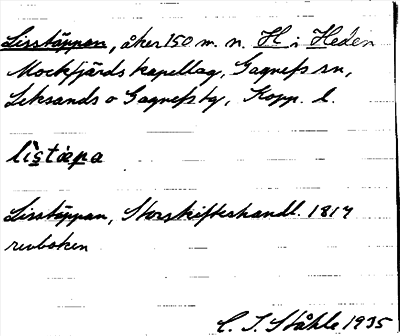 Lisstäppan, åker 150 m. n. H i Heden
Mockfjärds kapellag, Gagnefs sn,
Leksands o Gagnefs tg, Kopp. l.
lìstæpa
Lisstäppan, Storskifteshandl. 1817
revboken
C. I. Ståhle 1935